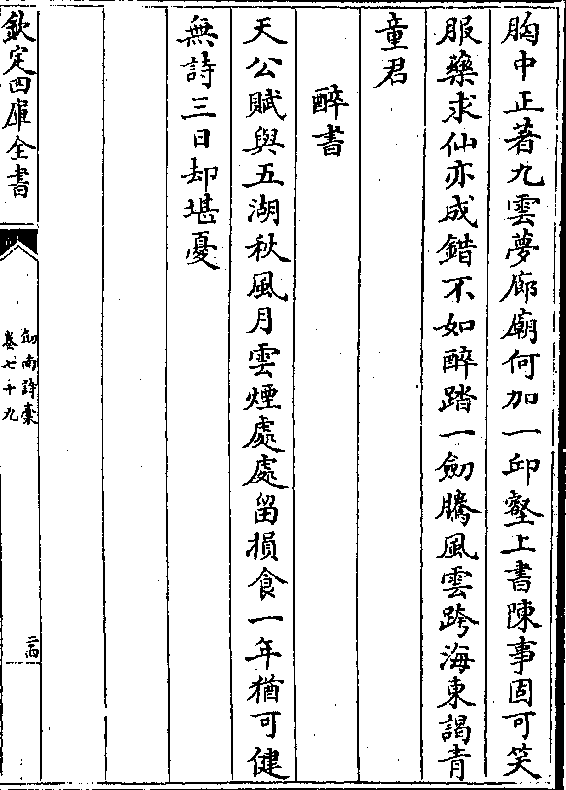 胸中正著九雲夢廊廟何加一邱壑上書陳事固可笑
服藥求仙亦成錯不如醉踏一劒騰風雲跨海東謁青
童君
醉書
天公賦與五湖秋風月雲煙處處留損食一年猶可健
無詩三日却堪憂
欽定四庫全書
劒南詩稾
卷七十九
二四